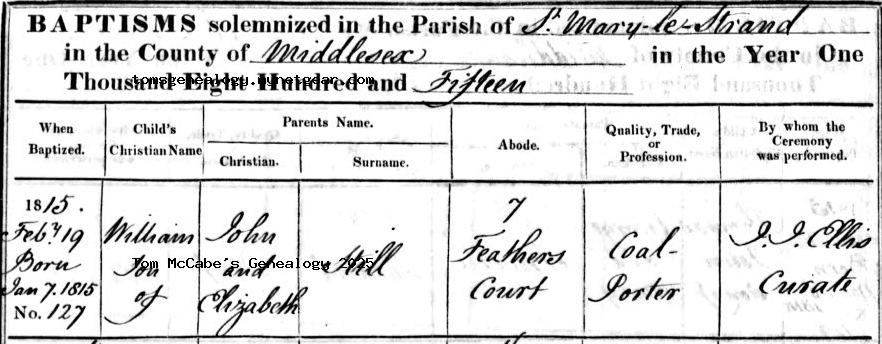 BAPTISMS solemnized in the Parish of St. Mary-le-Strand
in the County of Middlesex in the Year One
tomsgenealogy.mynetgear.com
Thousand Eight Hundred and Fifteen
When Baptized.
Child's Christian Name
Parents Name.
Christian.
Surname.
Abode.
Quality, Trade, or Profession.
By whom the Ceremony was performed.
1815.
Feby 19
Born
Jan 7. 1815
No. 127
William
Son
of
John
and
Elizabeth
Hill
Tom McCabe's Genealogy 2025
7
Feathers
Court
Coal-
Porter
J. J. Ellis
Curate